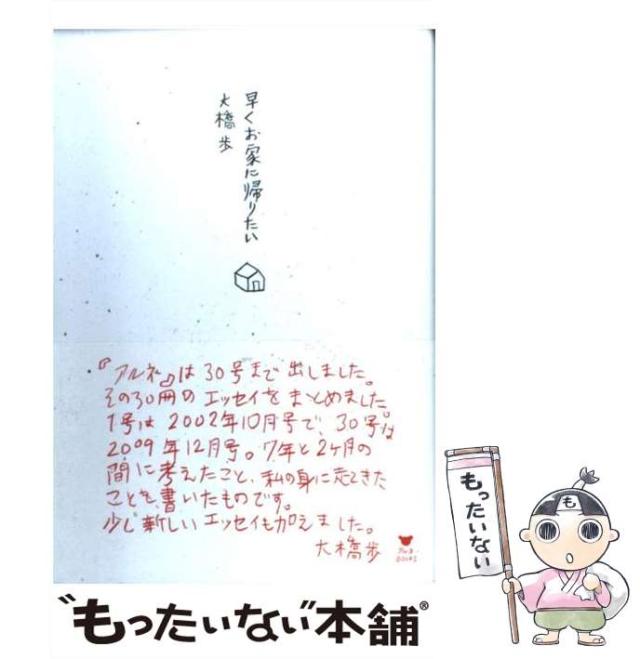 早くお家に帰りたい
大橋歩
『アルネ』は30号まで出しました。
その30冊のエッセイをまとめました。
1号は2002年10月号で、30号は
2009年12月号。7年と2ヶ月の
間に考えたこと、私の身に起きた
ことを、書いたものです。
少し新しいエッセイも加えました。
大橋歩
もったいない
も
"もったいない"本舗®